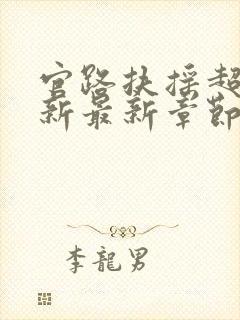 官路扶摇超
新最新章節
李龍男